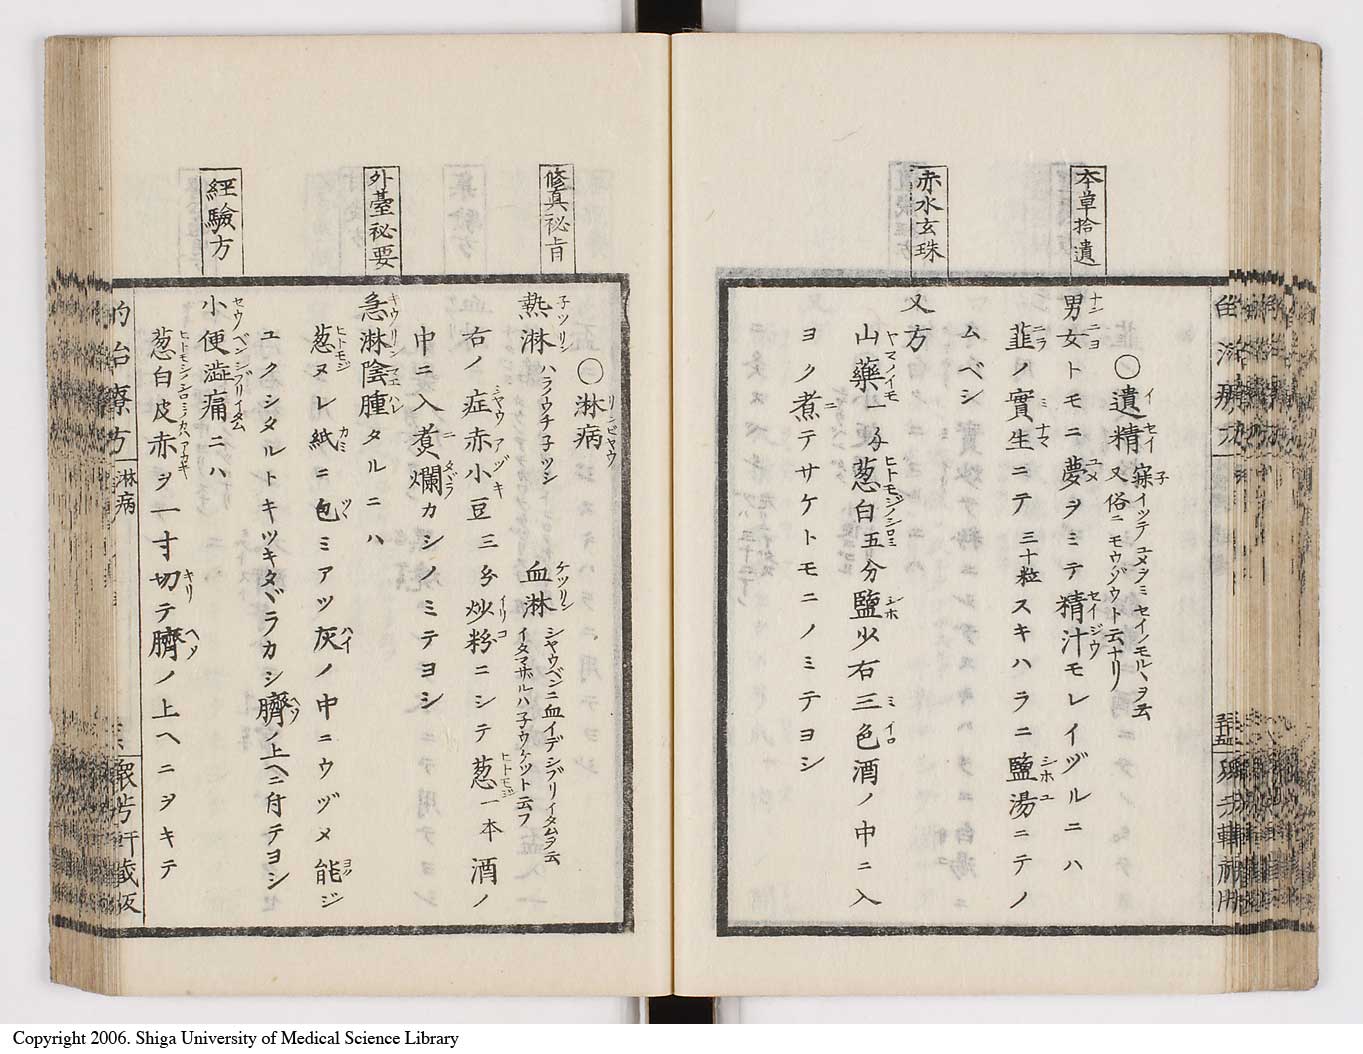 本草拾遺
赤水玄珠
○遺精 寐イツテユメヲミセイノモルヽヲ云
又俗ニモウゾウト云ナリ
男女トモニ夢ヲミテ精汁モレイヅルニハ
韮ノ實生ニテ三十粒スキハラニ鹽湯ニテノ
ムベシ
又方
山藥一匁葱白五分鹽少右三色酒ノ中ニ入
ヨク煮テサケトモニノミテヨシ
修真秘旨
外臺秘要
經驗方
○淋病
熱淋 ハラノウチ子ツシ 血淋 シヤウベンニ血イデシブリイタムヲ云
イタマザルハ子ウケツト云フ
右ノ症赤小豆三匁炒粉ニシテ葱一本酒ノ
中ニ入煑爛カシノミテヨシ
急淋陰腫タルニハ
葱ヌレ紙ニ包ミアツ灰ノ中ニウヅメ能ジ
ユクシタルトキツキタヾラカシ臍ノ上ヘニ付テヨシ
小便澁痛ニハ
葱白皮赤ヲ一寸切テ臍ノ上ヘニヲキテ
的治療方 淋病 衆芳軒藏板
Copyright 2006. Shiga University of Medical Science Library